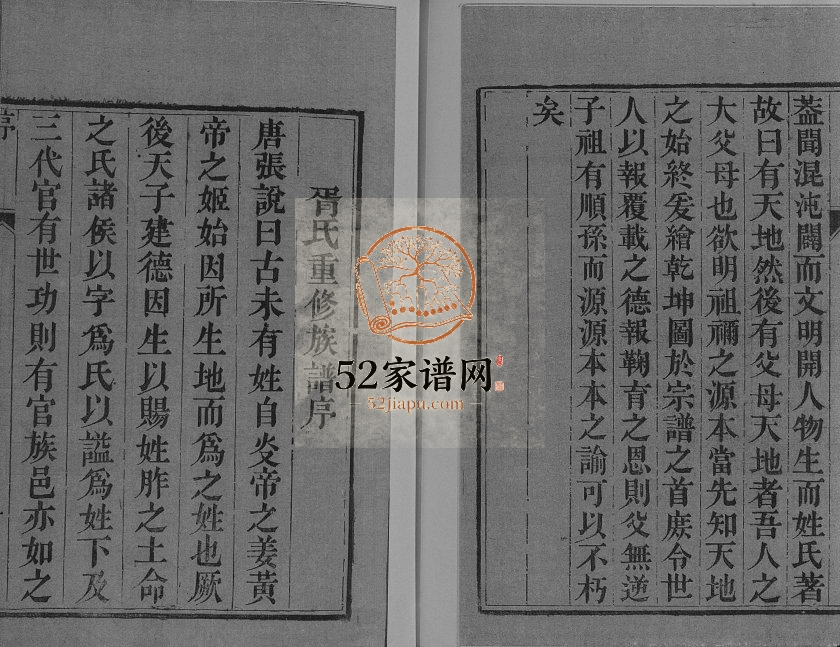 蓋聞混沌闢而文明開人物生而姓氏著
故曰有天地然後有父母天地者吾人之
大父母也欲明祖禰之源本當先知天地
之始終爰繪乾坤圖於宗譜之首庶令世
人以報覆載之德報鞠育之恩則父無逆
子祖有順孫而源源本本之諭可以不朽
矣
胥氏重修族譜序
唐張說曰古未有姓自炎帝之姜黃
帝之姬始因所生地而爲之姓也厥
後天子建德因生以賜姓胙之土命
之氏諸侯以字爲氏以謚爲姓下及
三代官有世功則有官族邑亦如之
序
52家谱网
52jiapu.com